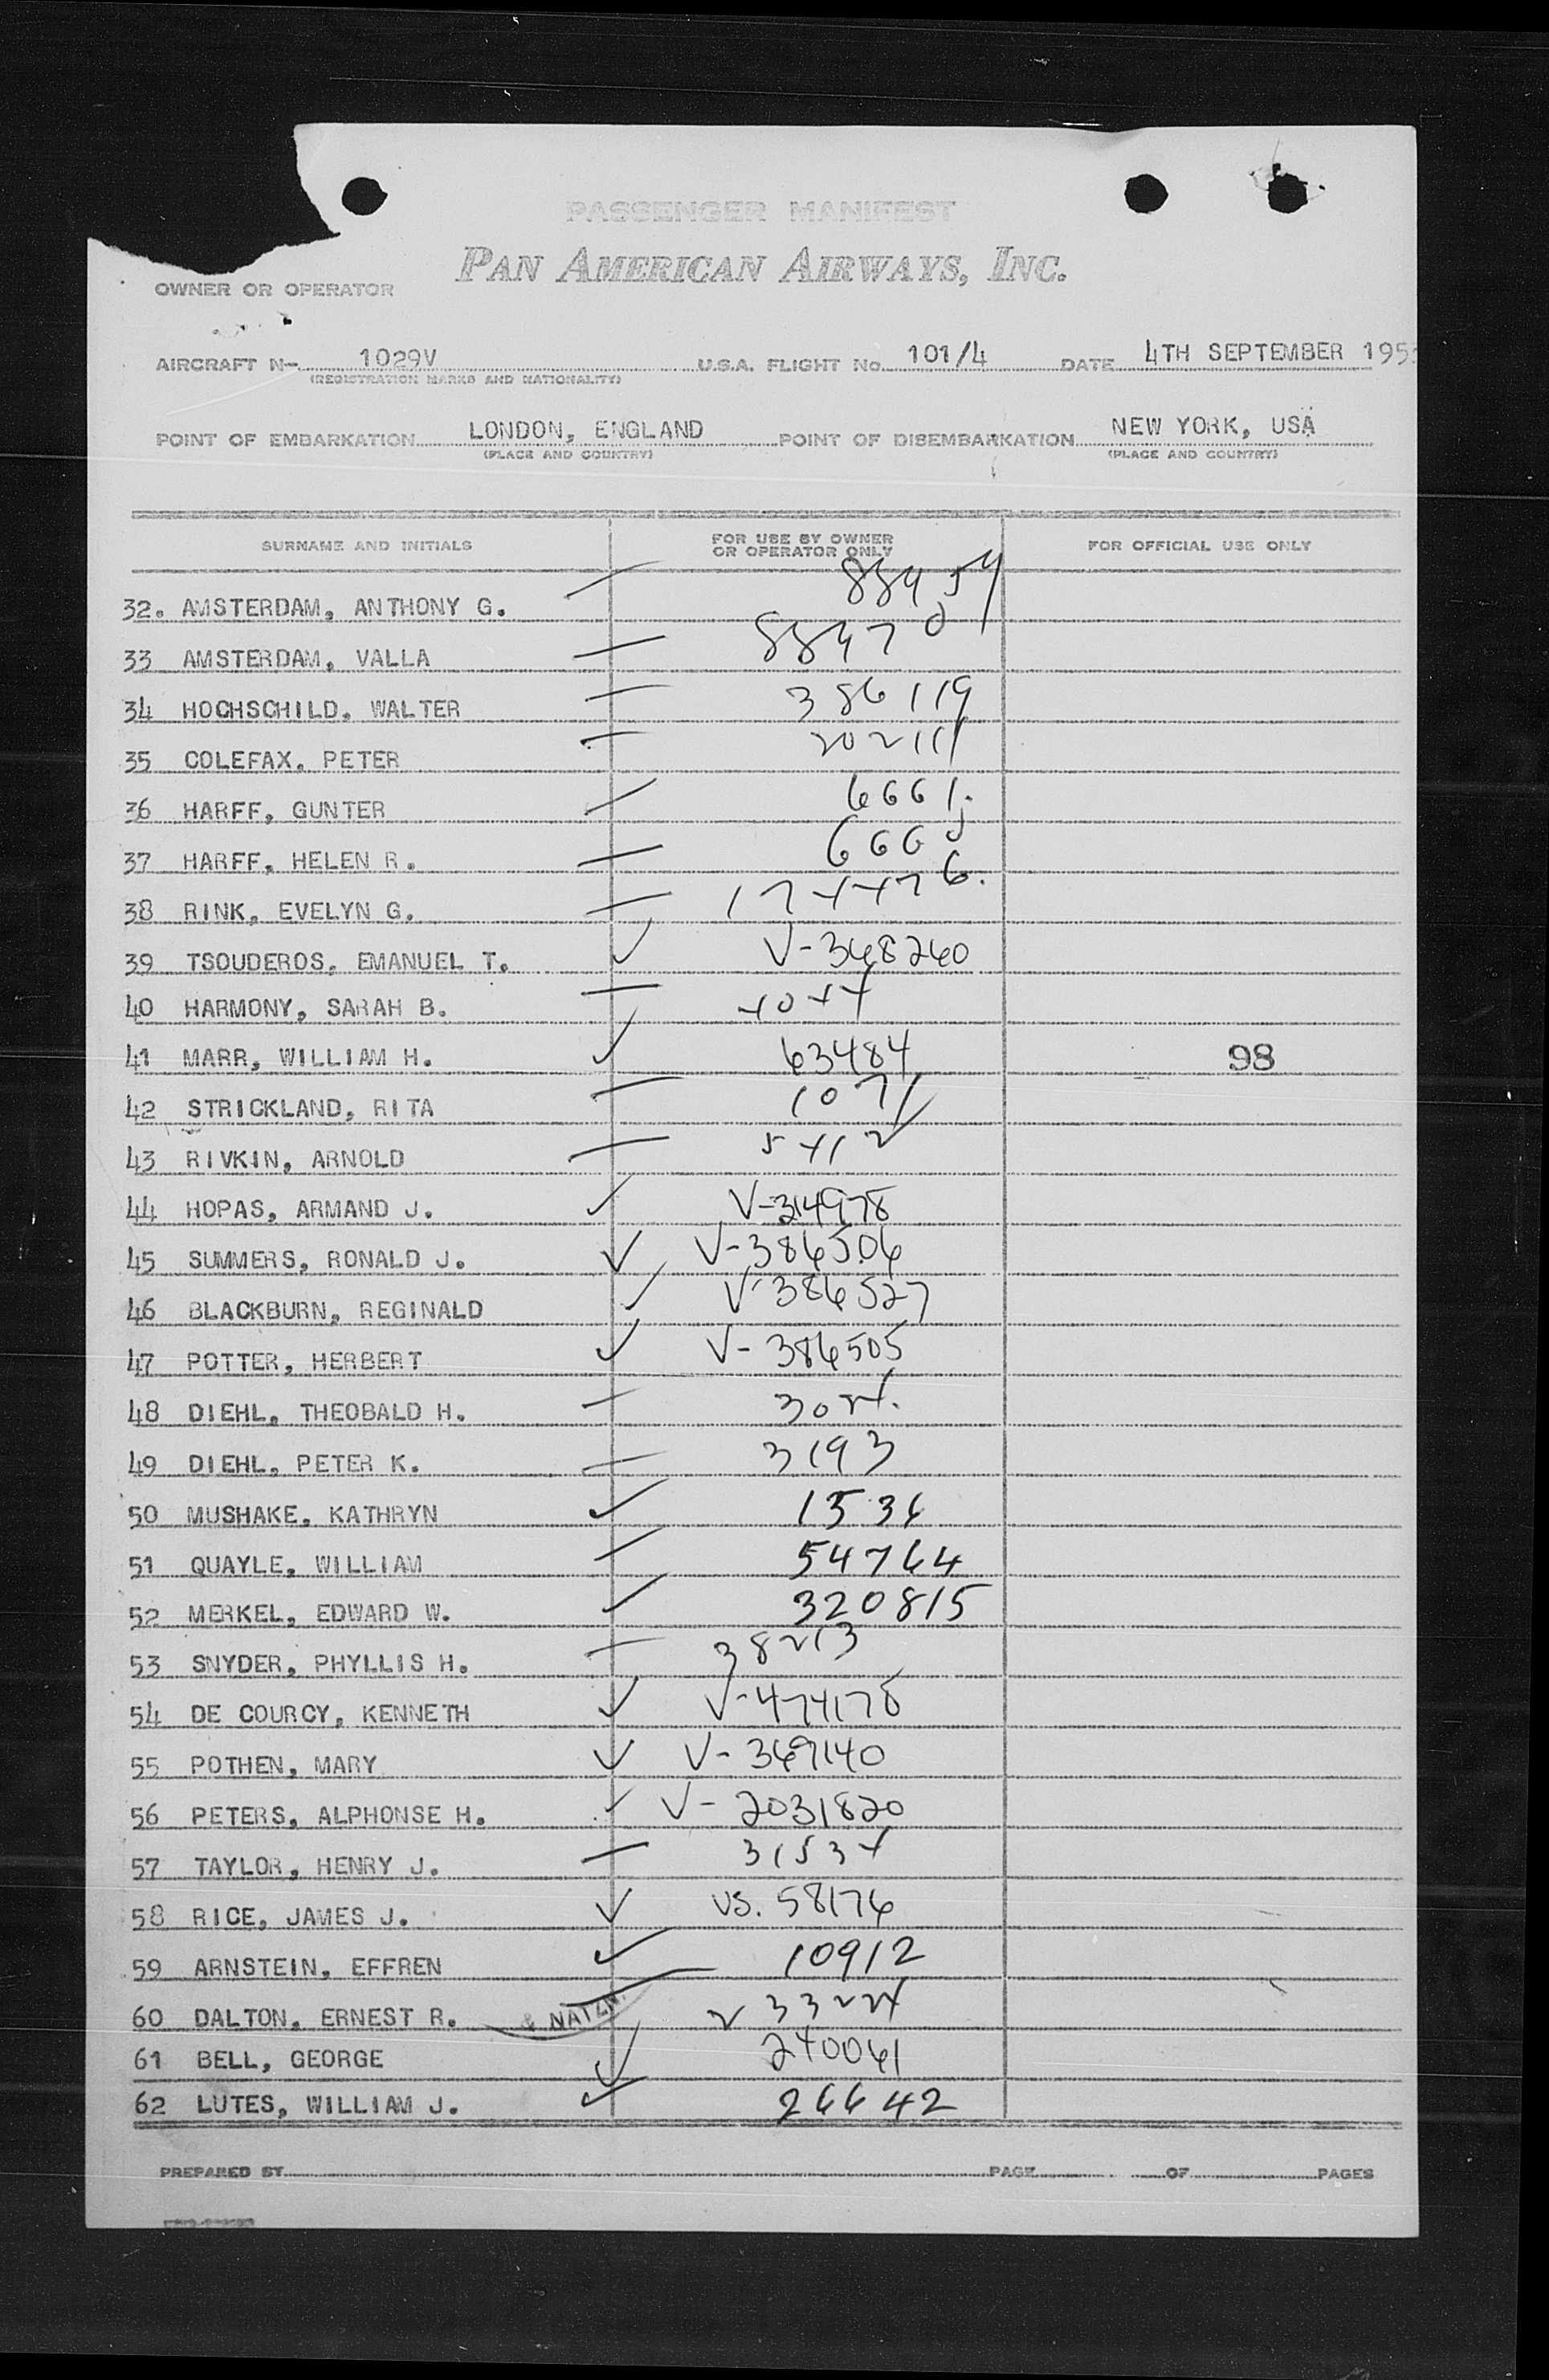 PASSENGER MANIFEST
PAN AMERICAN AIRWAYS, INC.
OWNER OR OPERATOR
AIRCRAFT N- 1029V U.S.A. FLIGHT No. 101/4 DATE 4TH SEPTEMBER 195
(REGISTRATION MARKS AND NATIONALITY)
POINT OF EMBARKATION LONDON, ENGLAND POINT OF DISEMBARKATION NEW YORK, USA
(PLACE AND COUNTRY) (PLACE AND COUNTRY)
SURNAME AND INITIALS FOR USE BY OWNER OR OPERATOR ONLY FOR OFFICIAL USE ONLY
32. AMSTERDAM, ANTHONY G.
33 AMSTERDAM, VALLA
34 HOCHSCHILD, WALTER 386119
35 COLEFAX, PETER 202111
36 HARFF, GUNTER
37 HARFF, HELEN R.
38 RINK, EVELYN G. 174476.
39 TSOUDEROS, EMANUEL T. V-368260
40 HARMONY, SARAH B. 4044
41 MARR, WILLIAM H. 63484 98
42 STRICKLAND, RITA 1071
43 RIVKIN, ARNOLD 5412
44 HOPAS, ARMAND J. V-314978
45 SUMMERS, RONALD J. V-386506
46 BLACKBURN, REGINALD V-386527
47 POTTER, HERBERT V-386505
48 DIEHL, THEOBALD H. 3024.
49 DIEHL, PETER K. 3193
50 MUSHAKE, KATHRYN 1536
51 QUAYLE, WILLIAM 54764
52 MERKEL, EDWARD W. 320815
53 SNYDER, PHYLLIS H. 38213
54 DE COURCY, KENNETH V-474178
55 POTHEN, MARY V-369140
56 PETERS, ALPHONSE H. V-2031820
57 TAYLOR, HENRY J. 31534
58 RICE, JAMES J. VS. 58176
59 ARNSTEIN, EFFREN 10912
60 DALTON, ERNEST R. & NATZN. 233224
61 BELL, GEORGE 240061
62 LUTES, WILLIAM J. 26642
PREPARED BY PAGE OF PAGES